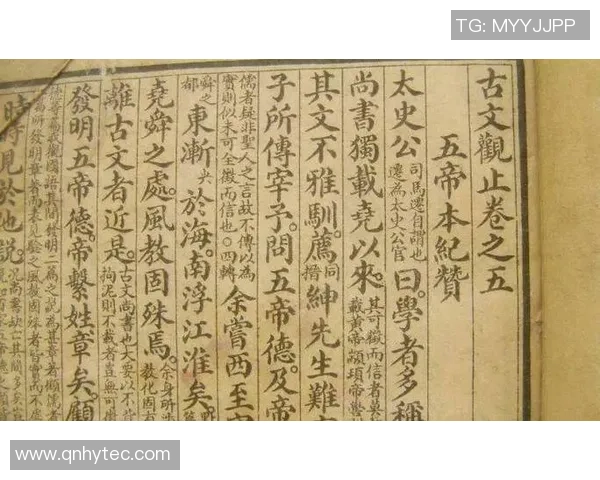 TG: MYYJJPP
古文觀止卷之五
五帝本紀贊
太史公司馬遷自謂也遷為太史公官曰。學者多稱
尚書獨載堯以來。其可徵而信者莫載黃帝顓頊帝嚳
其文不雅馴。薦同搢紳先生難
子所傳宰予。問五帝德。及帝
儒者疑非聖人之言故不傳以為實則似未可全徵而信也。○四轉余嘗西至
東漸於海。南浮江淮矣。
堯舜之處。風教固殊焉。余身所涉教化固有
離古文者近是。古文尚書也大要以不背拘泥則不載者豈無可
發明五帝德。帝繫姓章矣。顧
時時見於他說。
www.qnhytec.com